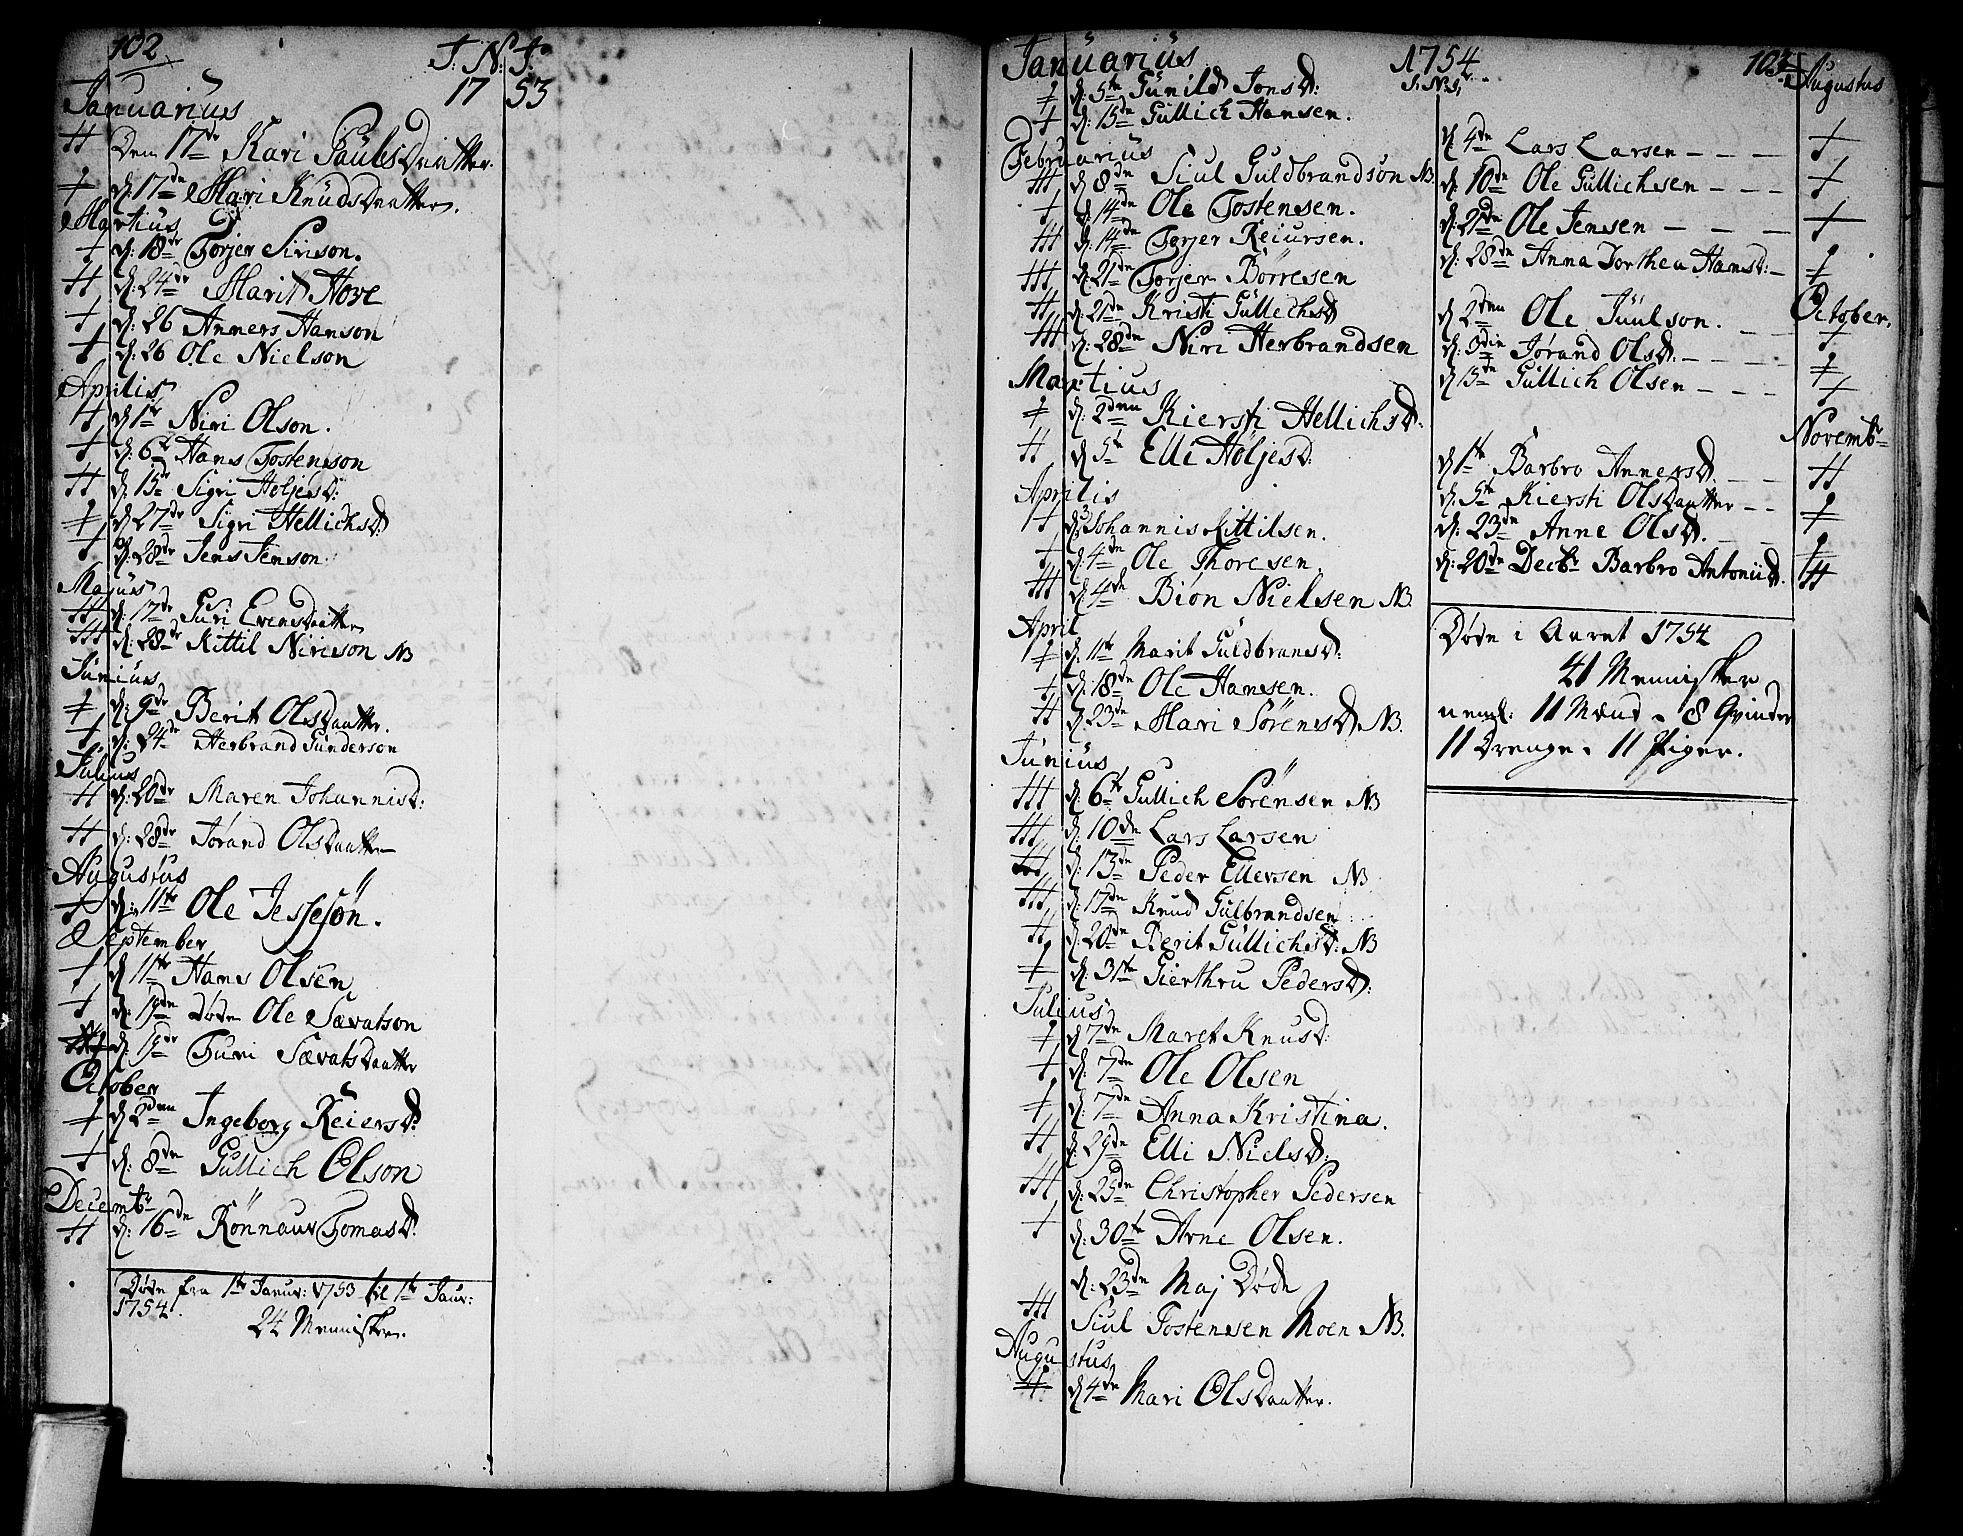 102
J: N: J:
17 53
Januarius
Den 17de Kari PaulsDaatter.
d: 17de Mari KnudsDaatter.
Martius
d: 18de Torjer Siüson.
d: 24de Marit Hove
d: 26 Anners Hanson
d: 26 Ole Nielson
Aprilis
d 1te Niri Olson.
d: 6te Hans Tostenson
d: 15de Sigri HeljesD:
d: 27de Sigri HellichsD
d: 28de Jens Jenson
Majus
d: 17de Guri EvensDaatter
d: 28de Kittil Nirison NB
Junius
d: 9de Berit OlsDaatter.
d: 24de Herbrand Gunderson
Julius
d: 20de Maren JohannisD:
d: 28de Jørand OlsDaatter
Augustus
d: 11te Ole Jessesøn.
September
d 11te Hans Olsen
d: 19de Døde Ole Sævatson
d: 19de Turi SævatsDaatter
October
d: 2den Ingeborg ReiersD:
d: 8de Gullich Olson
Decembr
d: 16de Rønnaus TomasD:
Døde fra 1te Januv: 1753 til 1te Januv:
1754.
24 Mennisker.
Januarius 1754 103
J. N. J.
d: 5te Gunild JonsD:
d: 15de Gullich Hansen.
Februarius
d 8de Siul Guldbrandsøn NB
d: 14de Ole Tostensen.
d: 14de Torjer Reiursen.
d: 21de Torjer Børresen
d: 21de Kristi GullichsD
d: 28de Niri Herbrandsen
Martius
d: 2den Kiersti HellichsD:
d 5te Elli HøljesD:
Aprilis
d 3 Johannis Kittilsen.
d: 4de Ole Thoresen.
d 4de Biøn Nielsen NB.
April
d. 11te Marit GuldbransD:
d: 18de Ole Hansen.
d: 23de Mari SørensD NB.
Junius
d: 6te Gullich Sørensen NB
d. 10de Lars Larsen
d: 13de Peder Ellevsen NB
d: 17de Knud Gulbrandsen
d: 20de Berit GullichsD: NB
d: 31te Gierthru PedersD:
Julius
d 7de Maret KnusD:
d: 7de Ole Olsen
d: 7de Anna Kristina.
d: 29de Elli NielsD:
d: 25de Christopher Pedersen
d: 30te Arne Olsen.
d: 23de Maj Døde
Siul Tostensen Moen NB.
Augustus
d 4de Mari OlsDaatter.
Augustus
d: 4de Lars Larsen - - -
d: 10de Ole Gullichsen - - -
d: 21de Ole Jensen - - -
d: 28de Anna Dorthea HansD: -
October.
d 2den Ole Juulson. - -
d: 3die Jørand OlsD: - - -
d 15de Gullich Olsen - - -
Novembr
d 1te Barbro AnnersD. - -
d: 5te Kiersti OlsDaatter - -
d: 23de Anne OlsD. - -
d: 20de Decbr Barbro AntoniiD.
Døde i Aaret 1754
41 Mennisker
neml: 11 Mænd. 8 Qvinder
11 Drenge. 11 Piger.